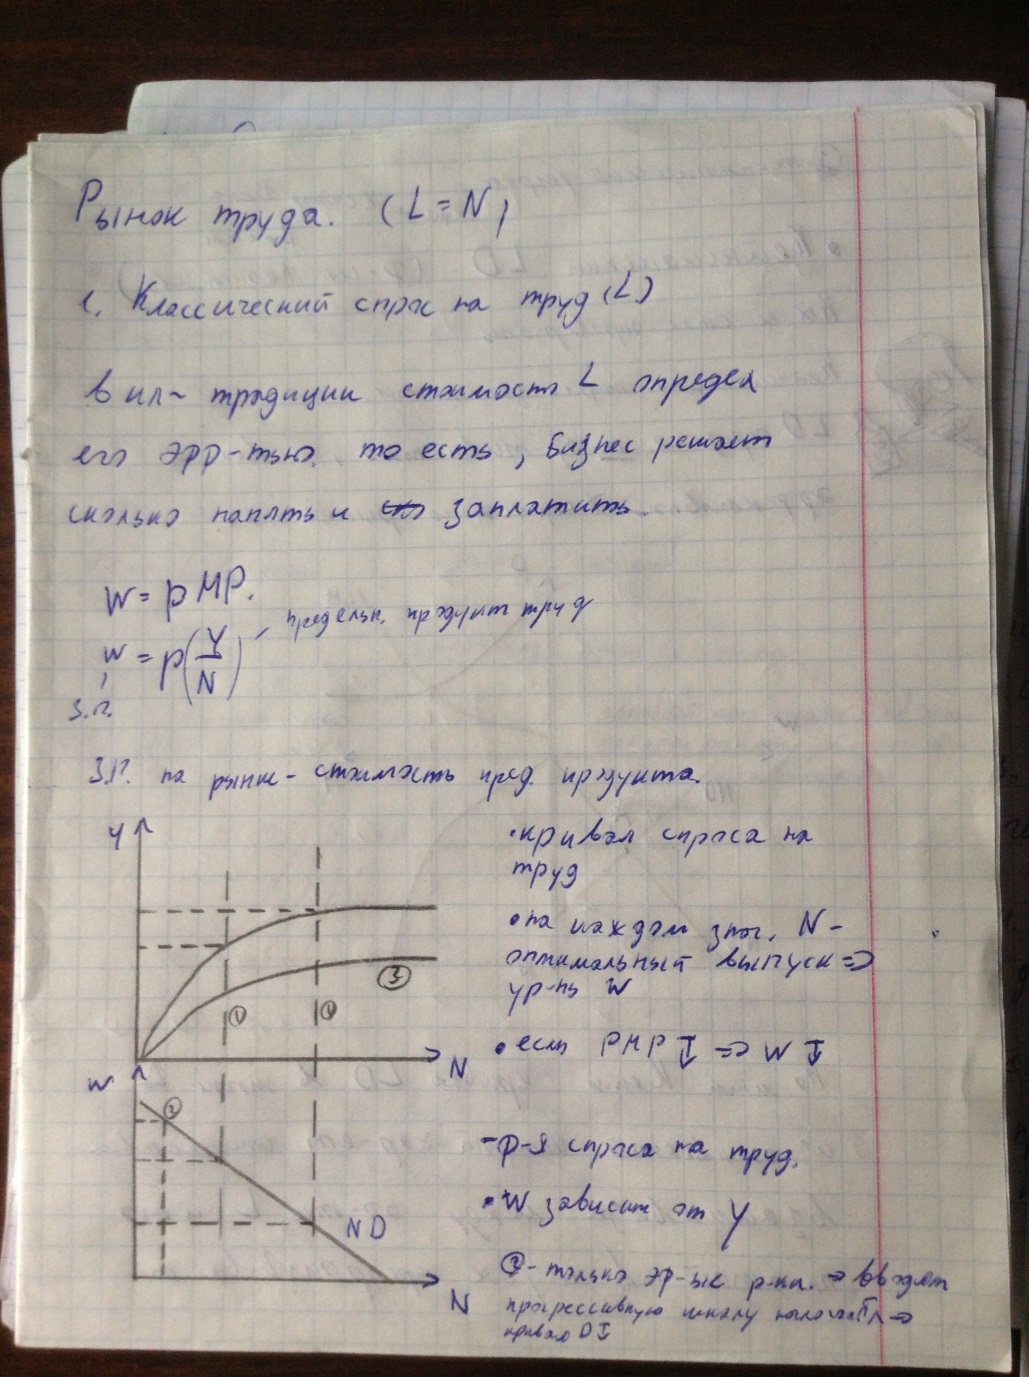 Рынок труда. (L=N)
1. Классический спрос на труд (L)
В кл~ традиции стоимость L определ
его эфф-тью. то есть, бизнес решает
сколько нанять и заплатить.
W = p MP.
W = p(Y/N) предельн. продукт труд
З.П.
З.П. на рынке - стоимость пред. продукта.
Y
• кривая спроса на
труд
• на каждом знач. N -
оптимальный выпуск =>
ур-нь W
③
① ①
• если PMP ↓ => W ↓
N
W
②
- ф-я спроса на труд.
• W зависит от Y
ND
- только эф-ые р-ки. => вводят
прогрессивную шкалу =>
кривая D ↓
N